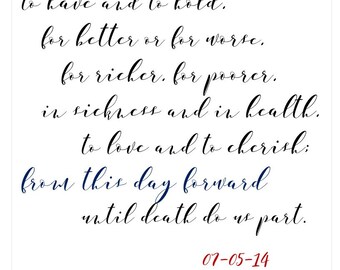 to have and to hold.
for better or for worse.
for richer. for poorer.
in sickness and in health.
to love and to cherish;
from this day forward
until death do us part.
07-05-14